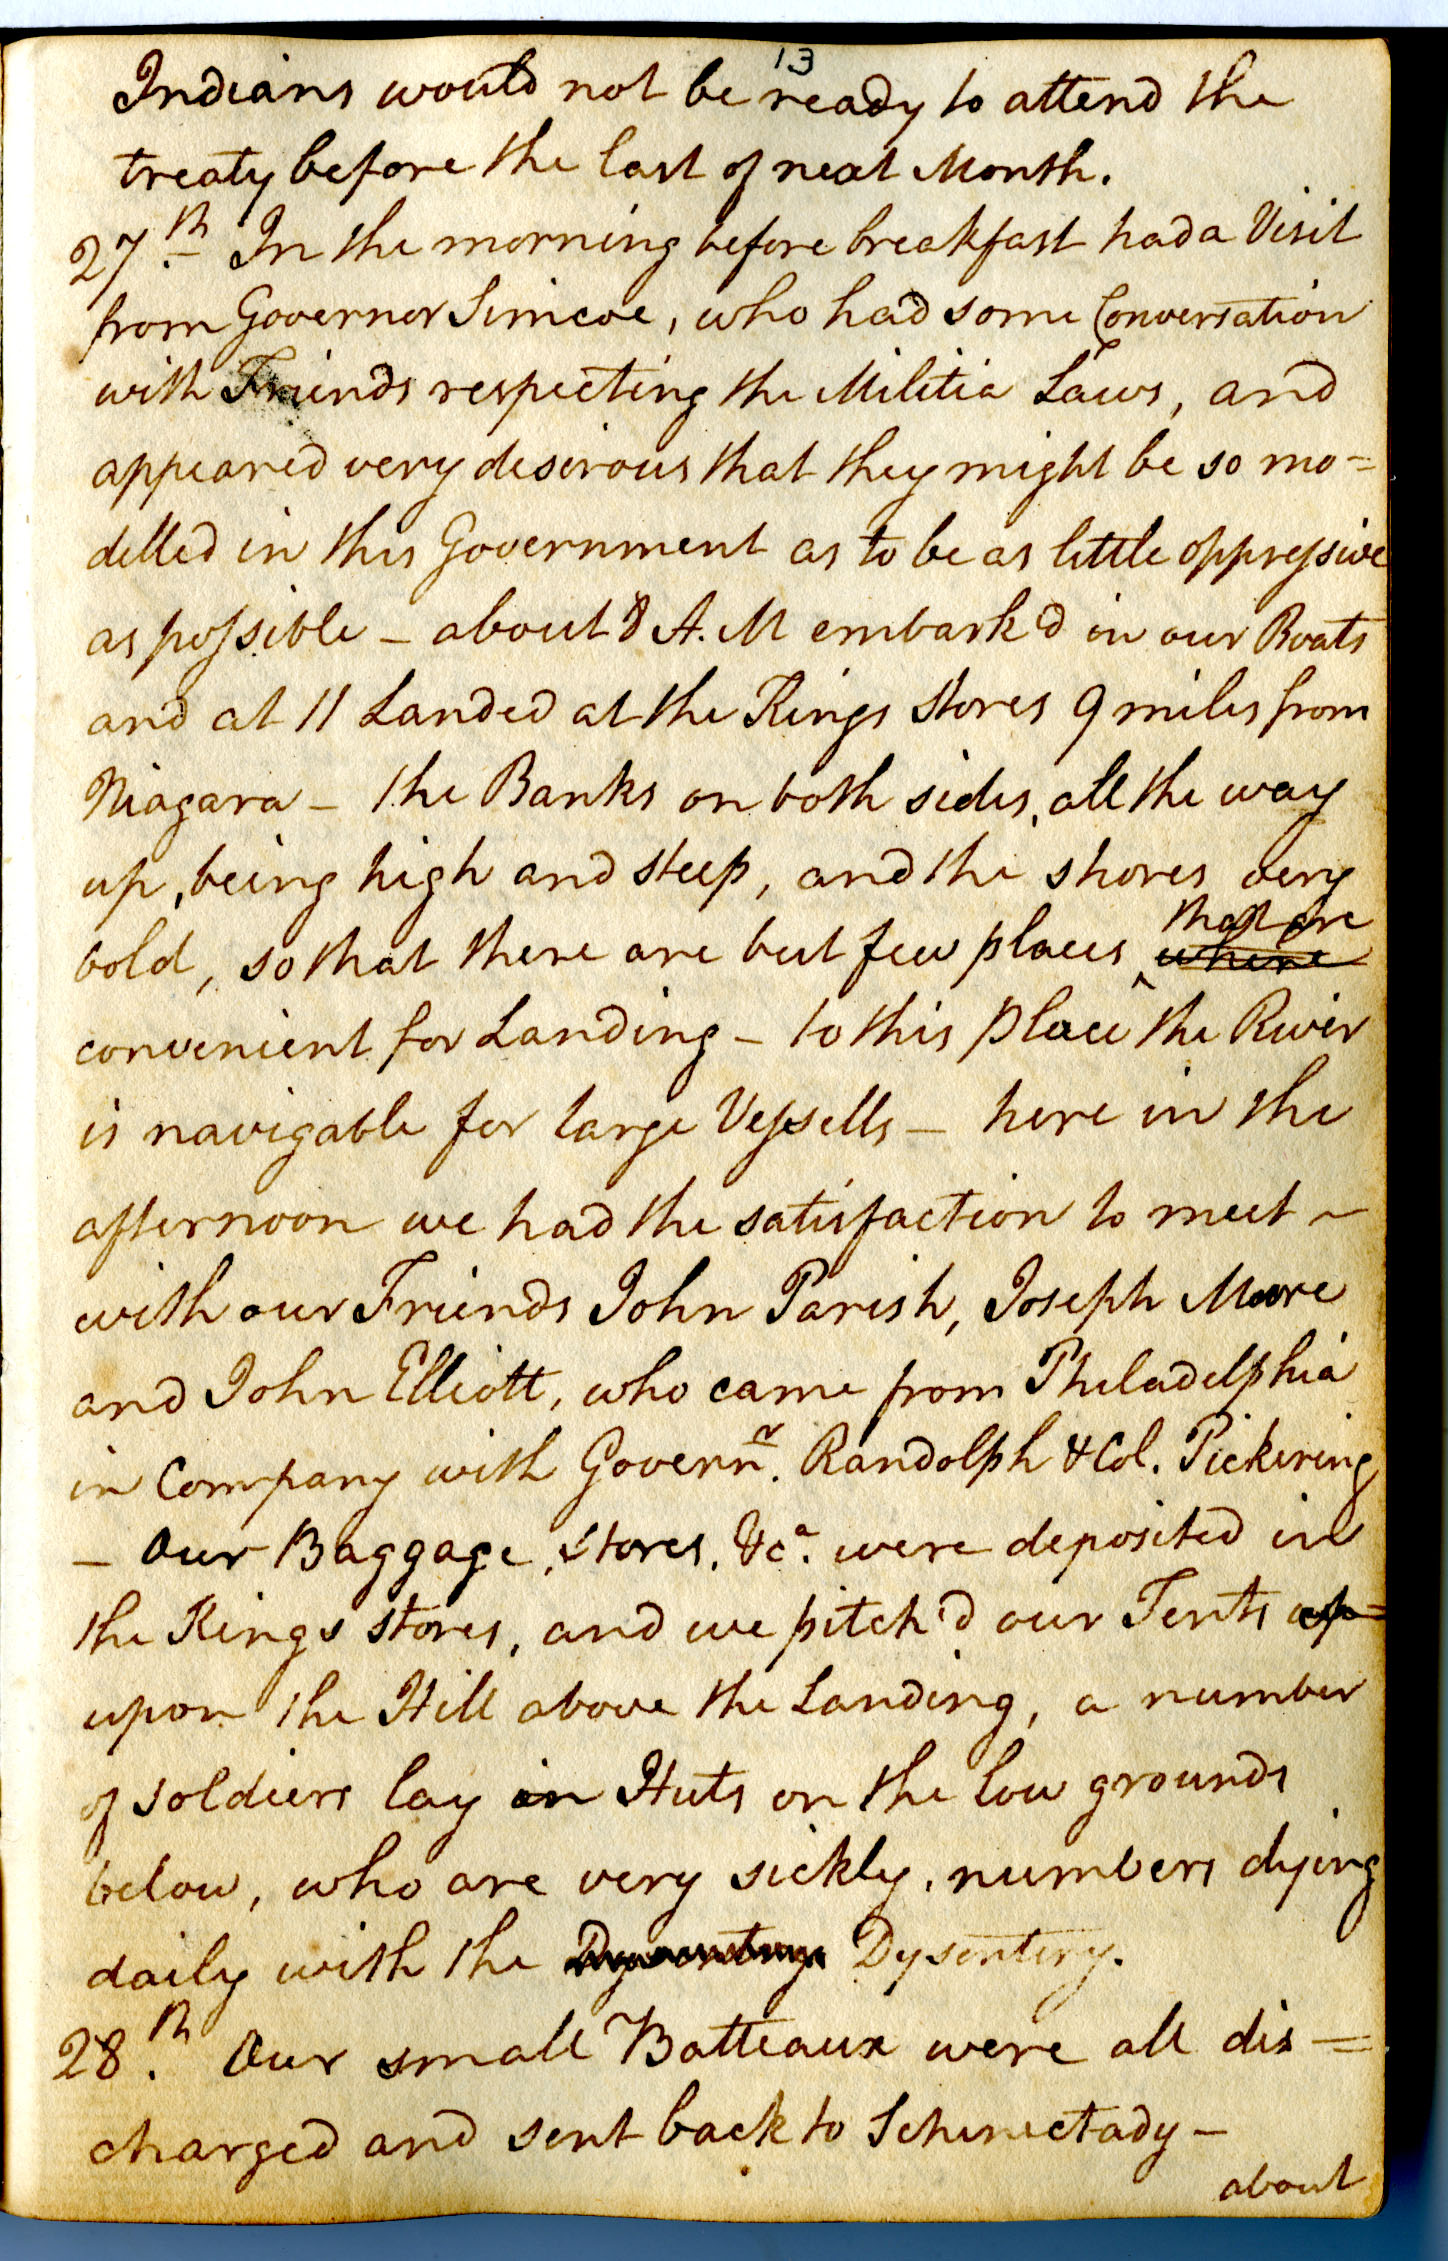 13
Indians would not be ready to attend the
treaty before the last of next Month.
27.th In the morning before breakfast had a Visit
from Governor Simcoe, who had some Conversation
with Friends respecting the Militia Laws, and
appeared very desirous that they might be so mo=
delled in this Government as to be as little oppressive
as possible – about 8 A.M embark'd in our Boats
and at 11 Landed at the Kings Stores 9 miles from
Niagara – the Banks on both sides, all the way
up, being high and steep, and the shores very
that are
bold, so that there are but few places ^ where
convenient for Landing – to this place the River
is navigable for large Vessells – here in the
afternoon we had the satisfaction to meet ~
with our Friends John Parish, Joseph Moore
and John Elliott, who came from Philadelphia
in Company with Govern.r Randolph & Col. Pickering
– Our Baggage, stores, &c.a were deposited in
the Kings stores, and we pitch'd our Tents up=
upon the Hill above the Landing, a number
of soldiers lay in Huts on the low grounds
below, who are very sickly, numbers dying
daily with the Dysentery.
28.th Our small Batteaux were all dis=
charged and sent back to Schenectady –
about